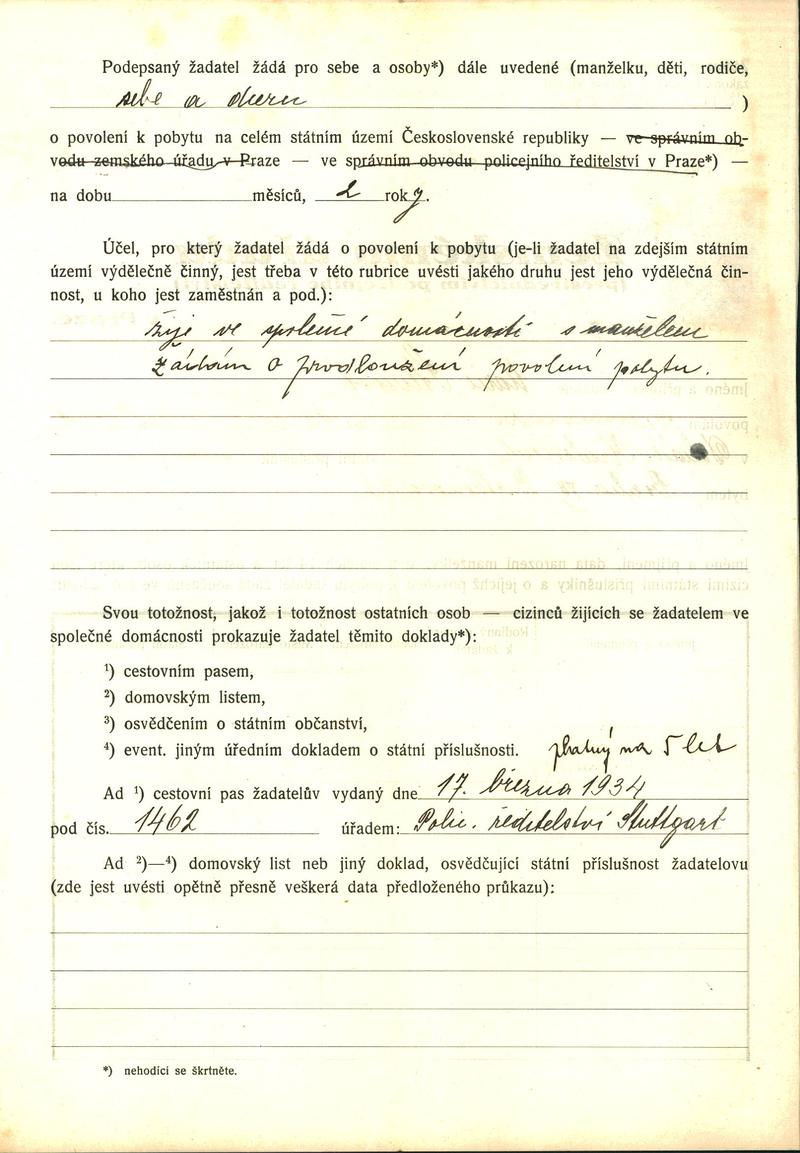 Podepsaný žadatel žádá pro sebe a osoby*) dále uvedené (manželku, děti, rodiče,
sebe a dceru )
o povolení k pobytu na celém státním území Československé republiky — ve správním ob-
vodu zemského úřadu v Praze — ve správním obvodu policejního ředitelství v Praze*) —
na dobu měsíců, 2 roky.
Účel, pro který žadatel žádá o povolení k pobytu (je-li žadatel na zdejším státním
území výdělečně činný, jest třeba v této rubrice uvésti jakého druhu jest jeho výdělečná čin-
nost, u koho jest zaměstnán a pod.):
žije ve společné domácnosti s manželem
žádám o prodloužení povolení pobytu.
Svou totožnost, jakož i totožnost ostatních osob — cizinců žijících se žadatelem ve
společné domácnosti prokazuje žadatel těmito doklady*):
¹) cestovním pasem,
²) domovským listem,
³) osvědčením o státním občanství,
⁴) event. jiným úředním dokladem o státní příslušnosti. platný na 5 let
Ad ¹) cestovní pas žadatelův vydaný dne 17. března 1934
pod čís. 1462 úřadem: Polic. ředitelství Stuttgart
Ad ²)—⁴) domovský list neb jiný doklad, osvědčující státní příslušnost žadatelovu
(zde jest uvésti opětně přesně veškerá data předloženého průkazu):
*) nehodící se škrtněte.